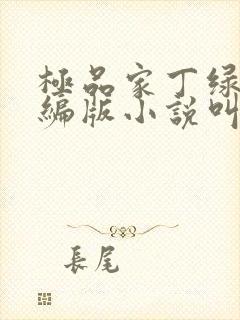 極品家丁绿
編版小說叫
長尾